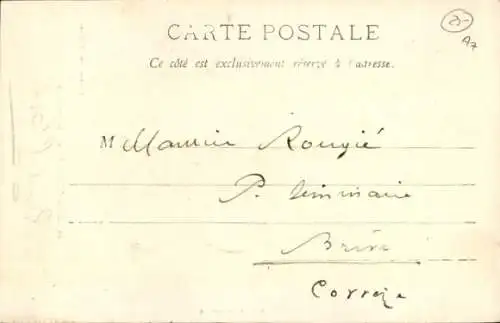 25-
A7
CARTE POSTALE
Ce côté est exclusivement réservé à l'adresse.
M Maurice Rougié
P. Seminaire
Brive
Correze